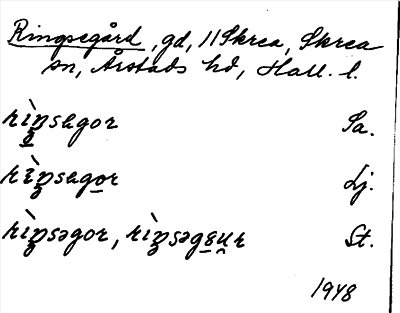 Ringsegård, gd, 11 Skrea, Skrea
sn, Årstads hd, Hall. l.
rìŋsegor Sa.
rìŋsagor Lj.
rìŋsəgor, rìŋsəg St.
1948